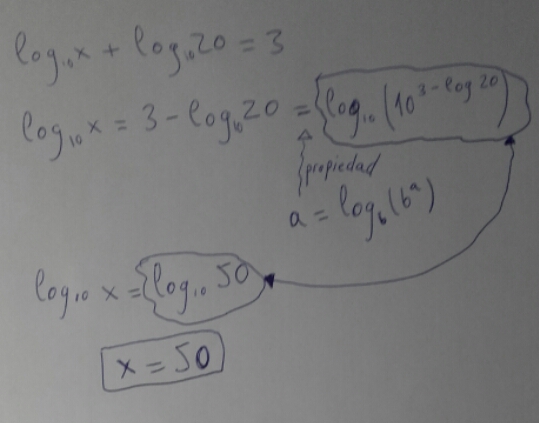 log₁₀x + log₁₀20 = 3
log₁₀x = 3 - log₁₀20 = log₁₀(10^(3-log 20))
propiedad
a = log_b(b^a)
log₁₀ x = log₁₀ 50
x = 50